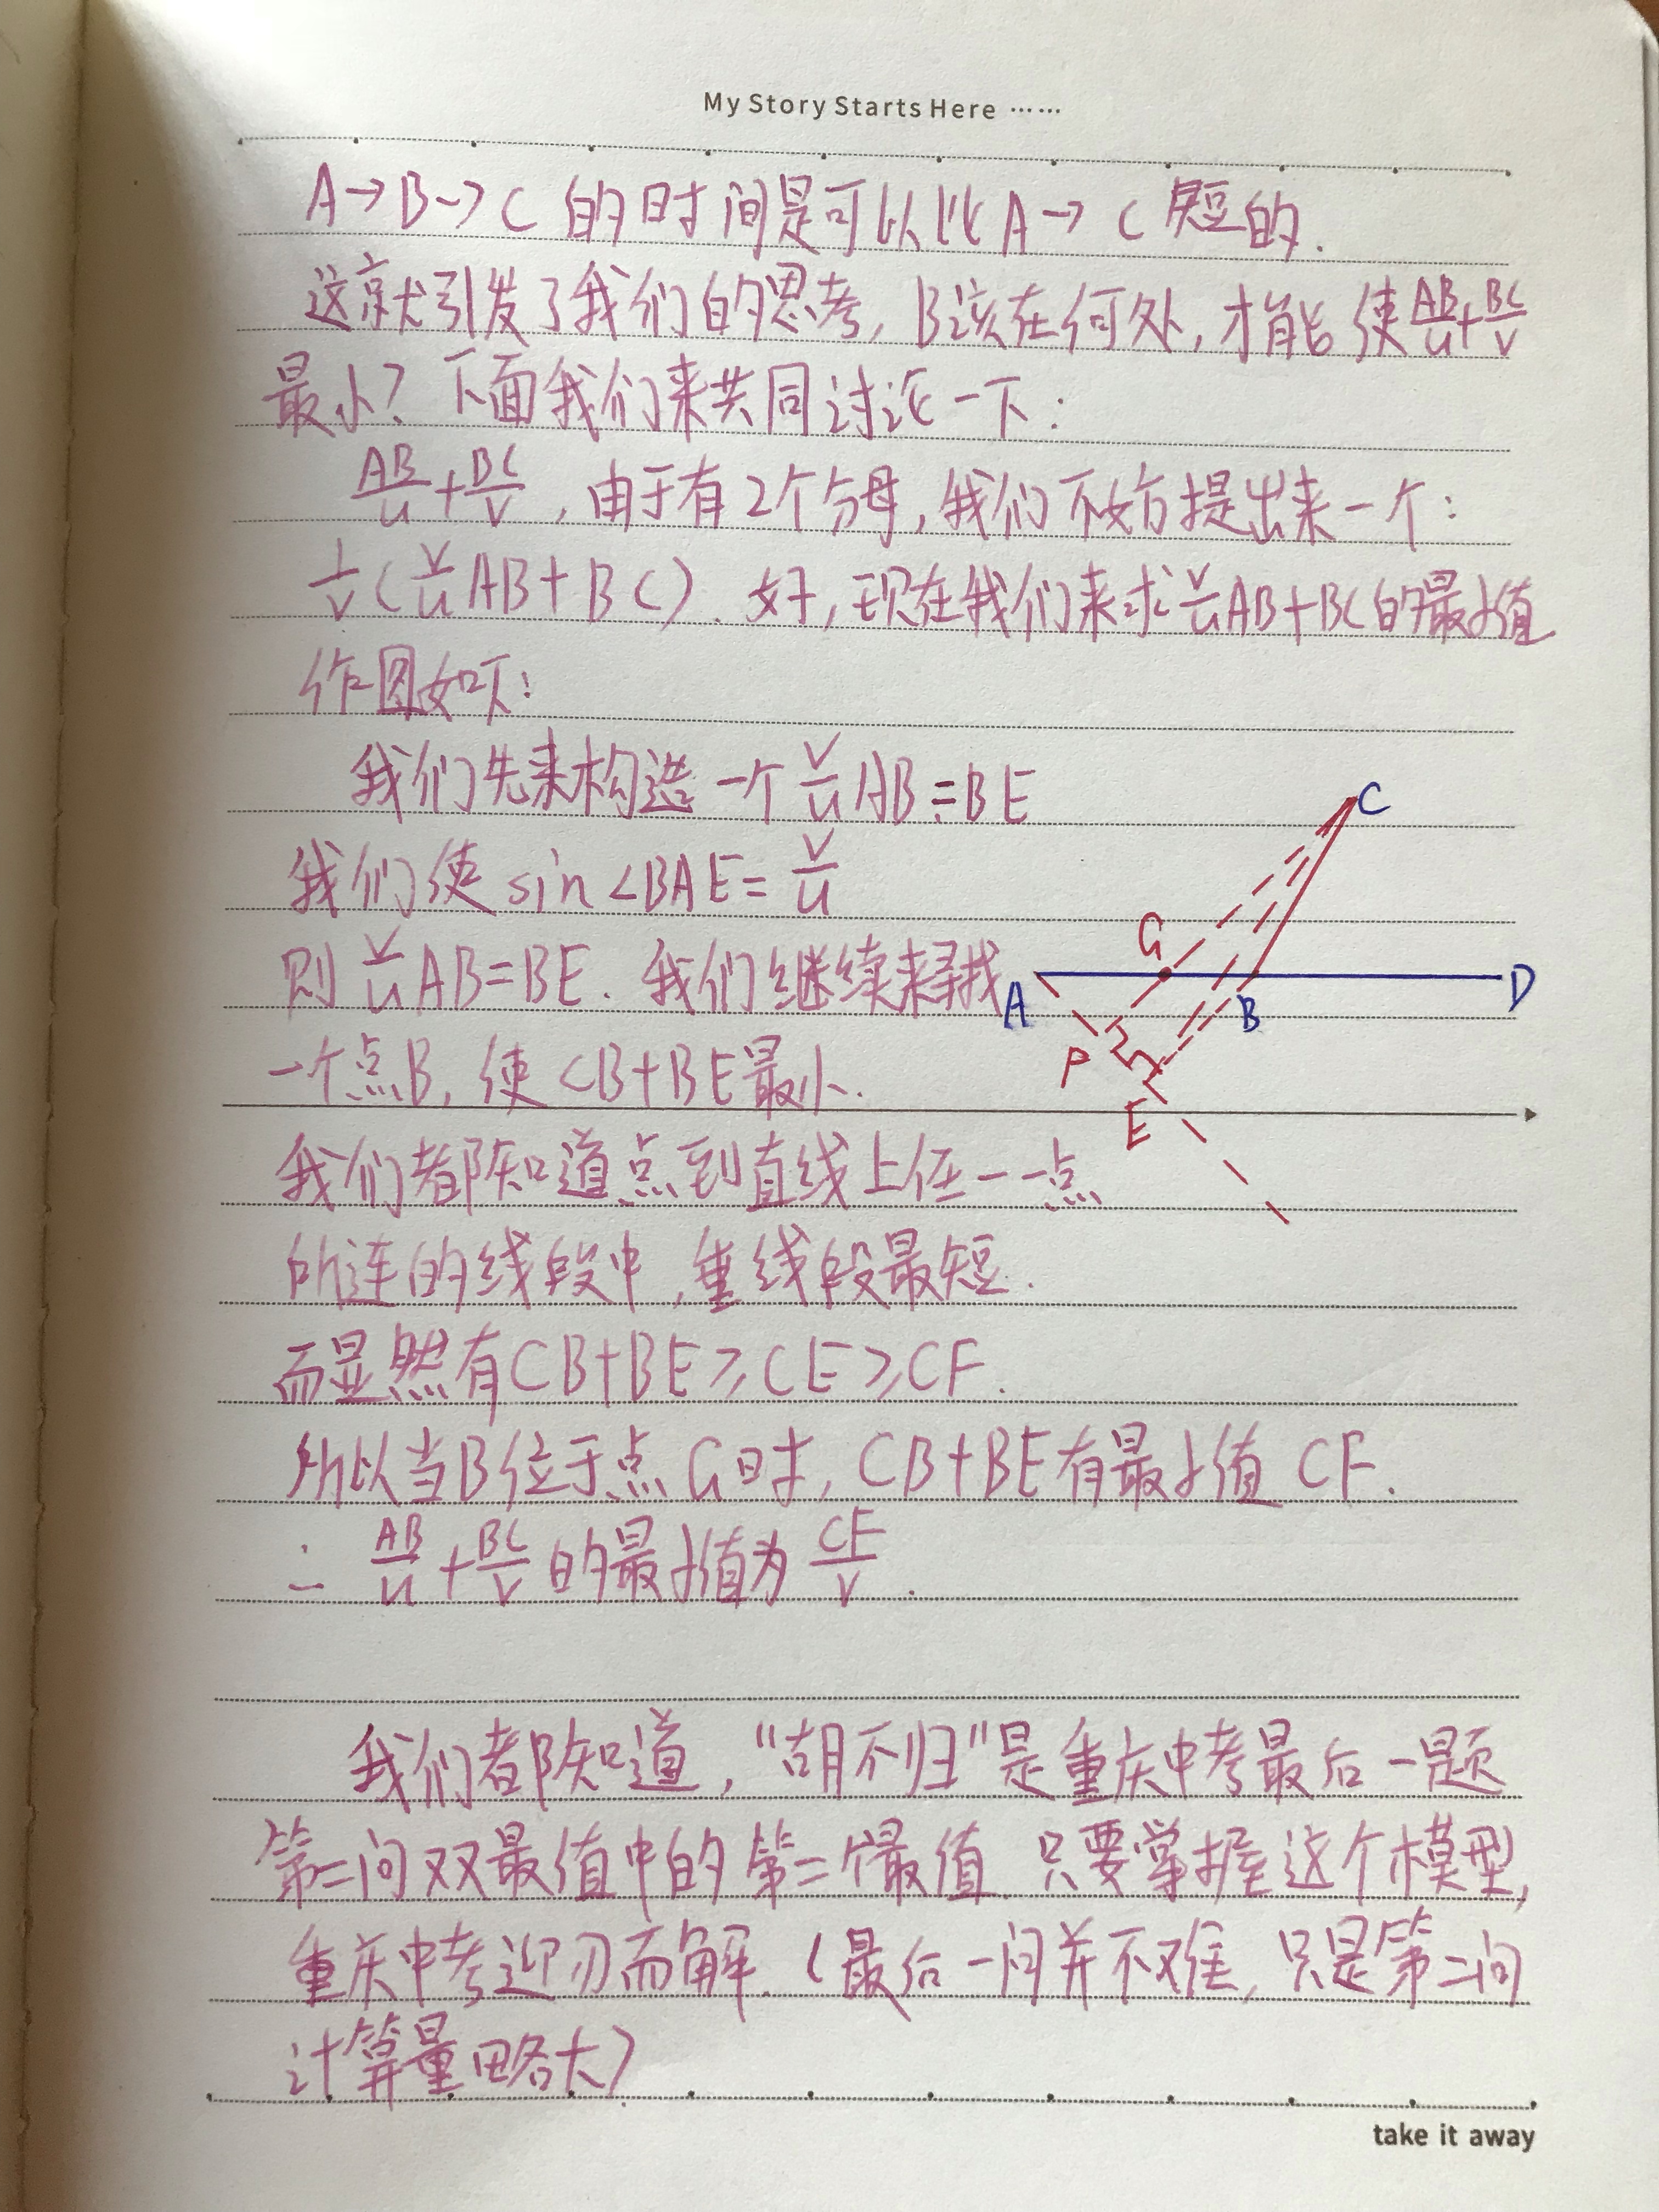 My Story Starts Here ······
A→B→C 的时间是可以比A→C 短的.
这就引发了我们的思考, B该在何处, 才能使 AB/u + BC/v
最小? 下面我们来共同讨论一下:
AB/u + BC/v , 由于有2个分母, 我们不妨提出来一个:
1/v (v/u AB + BC). 好, 现在我们来求 v/u AB+BC的最小值
作图如下:
我们先来构造一个 v/u AB = BE
我们使 sin∠BAE = v/u
则 v/u AB=BE. 我们继续来寻找
一个点B, 使CB+BE最小.
我们都知道点到直线上任一点
所连的线段中, 垂线段最短.
而显然有CB+BE≥CE≥CF.
所以当B位于点G时, CB+BE有最小值 CF.
∴ AB/u + BC/v 的最小值为 CF/v .
C
G
A
B
D
P
E
我们都知道, "胡不归"是重庆中考最后一题
第二问双最值中的第二个最值. 只要掌握这个模型,
重庆中考迎刃而解. (最后一问并不难, 只是第二问
计算量略大)
take it away